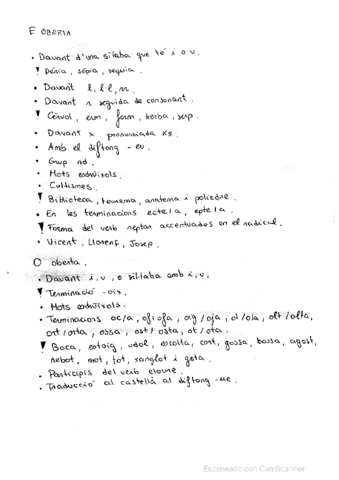 E OBERTA
• Davant d'una síl·laba que té i o u.
! Dèria, sèpia, sèquia.
• Davant l, l·l, rr.
• Davant r seguida de consonant.
! Cérvol, erm, ferm, herba, serp.
• Davant x pronunciada ks
• Amb el diftong -eu.
• Grup nd.
• Mots esdrúixols.
• Cultismes.
! Biblioteca, teorema, anatema i poliedre.
• En les terminacions ecte/a, epte/a.
! Forma del verb neptar accentuades en el radical.
• Vicent, Llorenç, Josep.
O oberta.
• Davant i, u, o síl·laba amb i, u.
! Terminació -oix.
• Mots esdrúixols.
• Terminacions oc/a, of/ofa, oig/oja, ol/ola, olt/olta,
ort/orta, ossa, ost/osta, ot/ota.
! Boca, estoig, udol, escolta, cort, gossa, bossa, agost,
nebot, mot, tot, xanglot i gota.
• Participis del verb cloure.
• Traducció al castellà al diftong -ue.
Escaneado con CamScanner